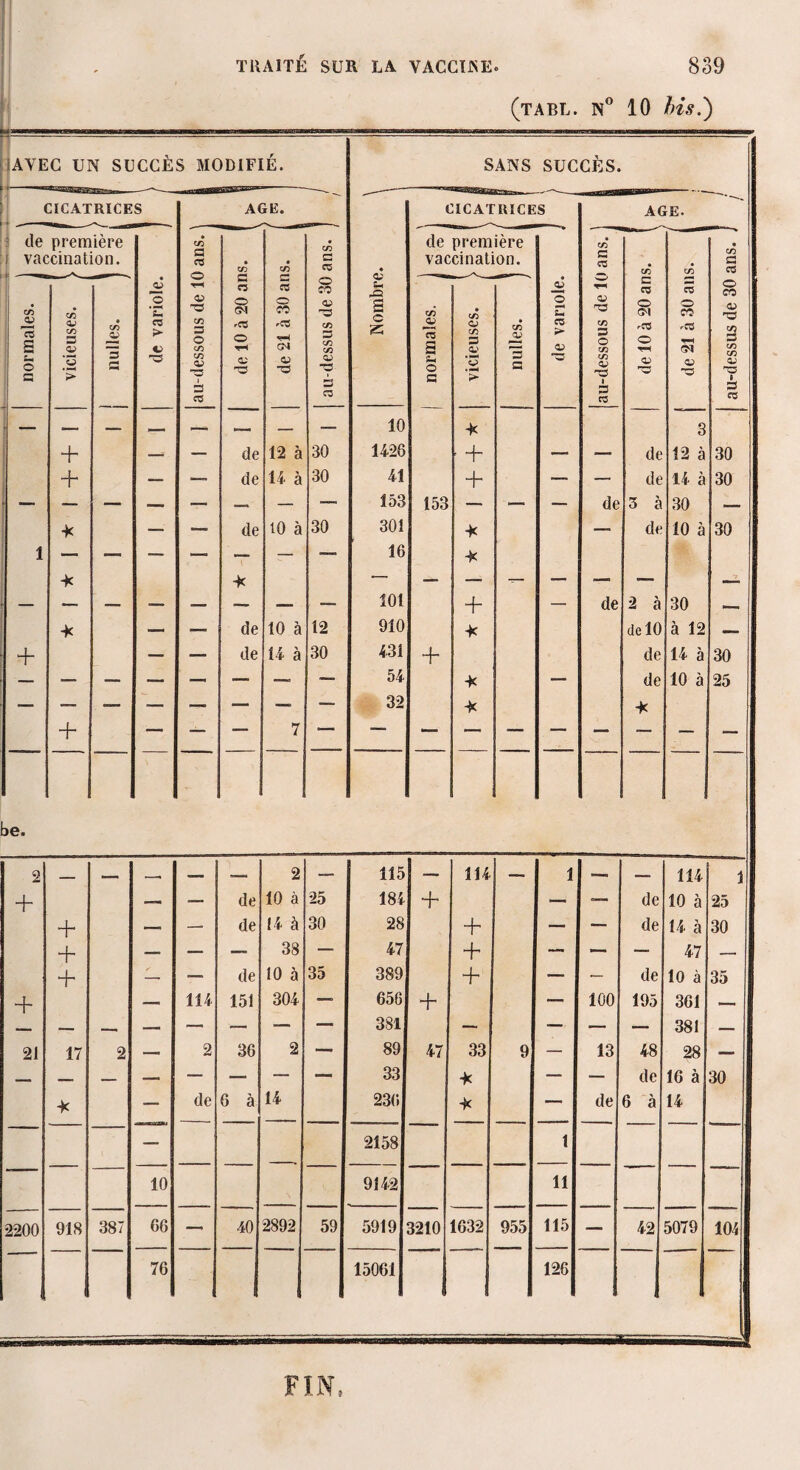 TRAITÉ SUR LA VACCINE. 839
(TABL. N° 10 bis.)
AVEC UN SUCCÈS MODIFIÉ. SANS SUCCÈS.
CICATRICES AGE. Nombre. CICATRICES AGE.
de première vaccination. de variole. au-dessous de 10 ans. de 10 à 20 ans. de 21 à 30 ans. au-dessus de 30 ans. de première vaccination. de variole. au-dessous de 10 ans. de 10 à 20 ans. de 21 à 30 ans. au-dessus de 30 ans.
normales. vicieuses. nulles. normales. vicieuses. nulles.
— — — — — — — — 10 * 3
+ — — de 12 à 30 1426 + — — de 12 à 30
+ — — de 14 à 30 41 + — — de 14 à 30
— — — — — — — — 153 153 — — — de 3 à 30 —
* — — de 10 à 30 301 * — de 10 à 30
1 — — — — — — — 16 *
* * — — — — — — — —
— — — — — — — — 101 + — de 2 à 30 —
* — — de 10 à 12 910 * de 10 à 12 —
+ — — de 14 à 30 431 + de 14 à 30
— — — — — — — — 54 * — de 10 à 25
— — — — — — — — 32 * *
+ — — — 7 — — — — — — — — — —
be.
2 — — — — — 2 — 115 — 114 — 1 — — 114 1
+ — — de 10 à 25 184 + — — de 10 à 25
+ — — de 14 à 30 28 + — — de 14 à 30
+ — — — 38 — 47 + — — — 47 —
+ — — de 10 à 35 389 + — — de 10 à 35
+ — 114 151 304 — 656 + — 100 195 361 —
— — — — — — — — 381 — — — — 381 —
21 17 2 — 2 36 2 — 89 47 33 9 — 13 48 28 —
— — — — — — — — 33 * — — de 16 à 30
* — de 6 à 14 236 * — de 6 à 14
— 2158 1
10 9142 11
2200 918 387 66 — 40 2892 59 5919 3210 1632 955 115 — 42 5079 104
76 15061 126
FIN.